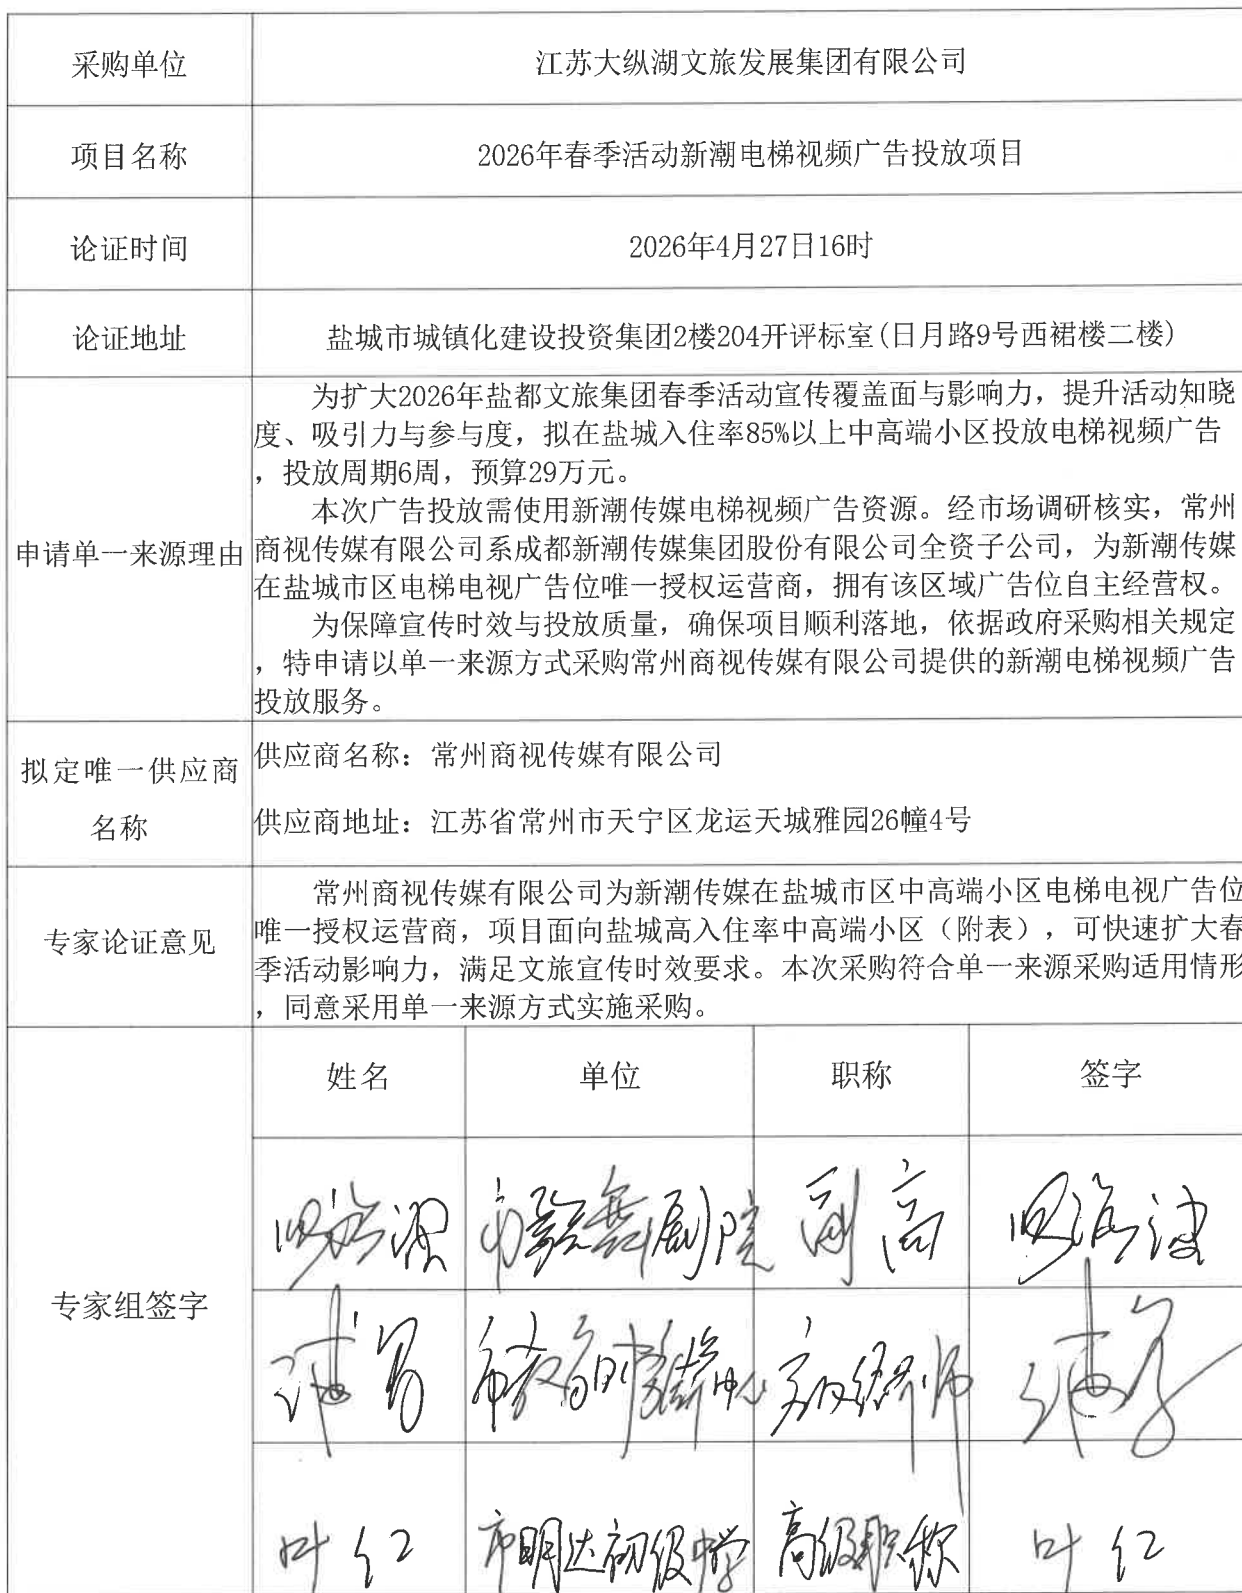 采购单位
江苏大纵湖文旅发展集团有限公司
项目名称
2026年春季活动新潮电梯视频广告投放项目
论证时间
2026年4月27日16时
论证地址
盐城市城镇化建设投资集团2楼204开评标室(日月路9号西裙楼二楼)
申请单一来源理由
为扩大2026年盐都文旅集团春季活动宣传覆盖面与影响力，提升活动知晓
度、吸引力与参与度，拟在盐城入住率85%以上中高端小区投放电梯视频广告
，投放周期6周，预算29万元。
本次广告投放需使用新潮传媒电梯视频广告资源。经市场调研核实，常州
商视传媒有限公司系成都新潮传媒集团股份有限公司全资子公司，为新潮传媒
在盐城市区电梯电视广告位唯一授权运营商，拥有该区域广告位自主经营权。
为保障宣传时效与投放质量，确保项目顺利落地，依据政府采购相关规定
，特申请以单一来源方式采购常州商视传媒有限公司提供的新潮电梯视频广告
投放服务。
拟定唯一供应商
名称
供应商名称：常州商视传媒有限公司
供应商地址：江苏省常州市天宁区龙运天城雅园26幢4号
专家论证意见
常州商视传媒有限公司为新潮传媒在盐城市区中高端小区电梯电视广告位
唯一授权运营商，项目面向盐城高入住率中高端小区（附表），可快速扩大春
季活动影响力，满足文旅宣传时效要求。本次采购符合单一来源采购适用情形
，同意采用单一来源方式实施采购。
专家组签字
姓名 单位 职称 签字
剧院 副高
市教育 中心
叶仁 市明达初级中学 高级职称 叶仁